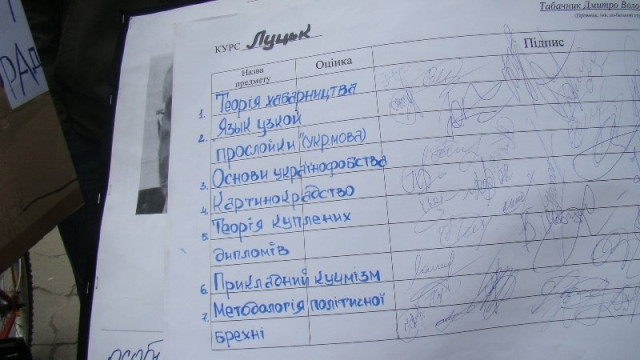 РАД
Табачник Дмитро Воло
КУРС Луцик
Назва предмету
Оцінка
Підпис
1. Теорія хабарництва
2. Язык узкой
прослойки (укрмова)
3. Основи українофобства
4. Картинокрадство
5. Теорія куплених
дипломів
6. Прикладний кучмізм
7. Методологія політичної
брехні
особ